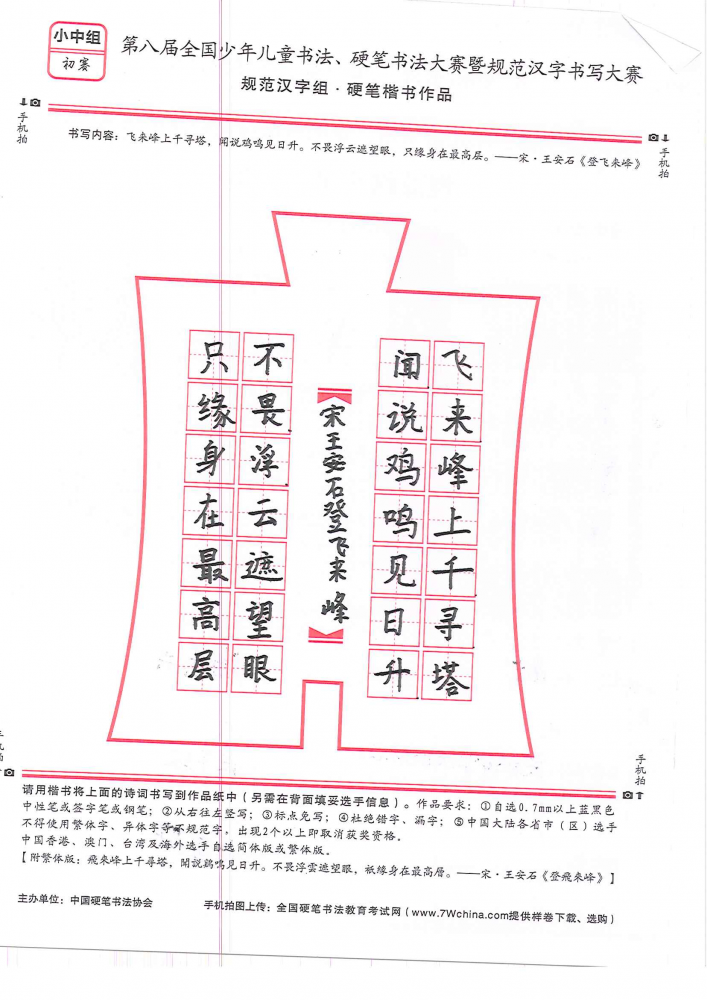 小中组
初赛
第八届全国少年儿童书法、硬笔书法大赛暨规范汉字书写大赛
规范汉字组·硬笔楷书作品
手机拍
手机拍
书写内容：飞来峰上千寻塔，闻说鸡鸣见日升。不畏浮云遮望眼，只缘身在最高层。——宋·王安石《登飞来峰》
飞来峰上千寻塔
闻说鸡鸣见日升
宋王安石登飞来峰
不畏浮云遮望眼
只缘身在最高层
手机拍
请用楷书将上面的诗词书写到作品纸中（另需在背面填妥选手信息）。作品要求：①自选0.7mm以上蓝黑色
中性笔或签字笔或钢笔；②从右往左竖写；③标点免写；④杜绝错字、漏字；⑤中国大陆各省市（区）选手
不得使用繁体字、异体字等不规范字，出现2个以上即取消获奖资格。
中国香港、澳门、台湾及海外选手自选简体版或繁体版。
【附繁体版：飛來峰上千尋塔，聞說鷄鳴見日升。不畏浮雲遮望眼，衹緣身在最高層。——宋·王安石《登飛來峰》】
主办单位：中国硬笔书法协会
手机拍图上传：全国硬笔书法教育考试网（www.7Wchina.com提供样卷下载、选购）